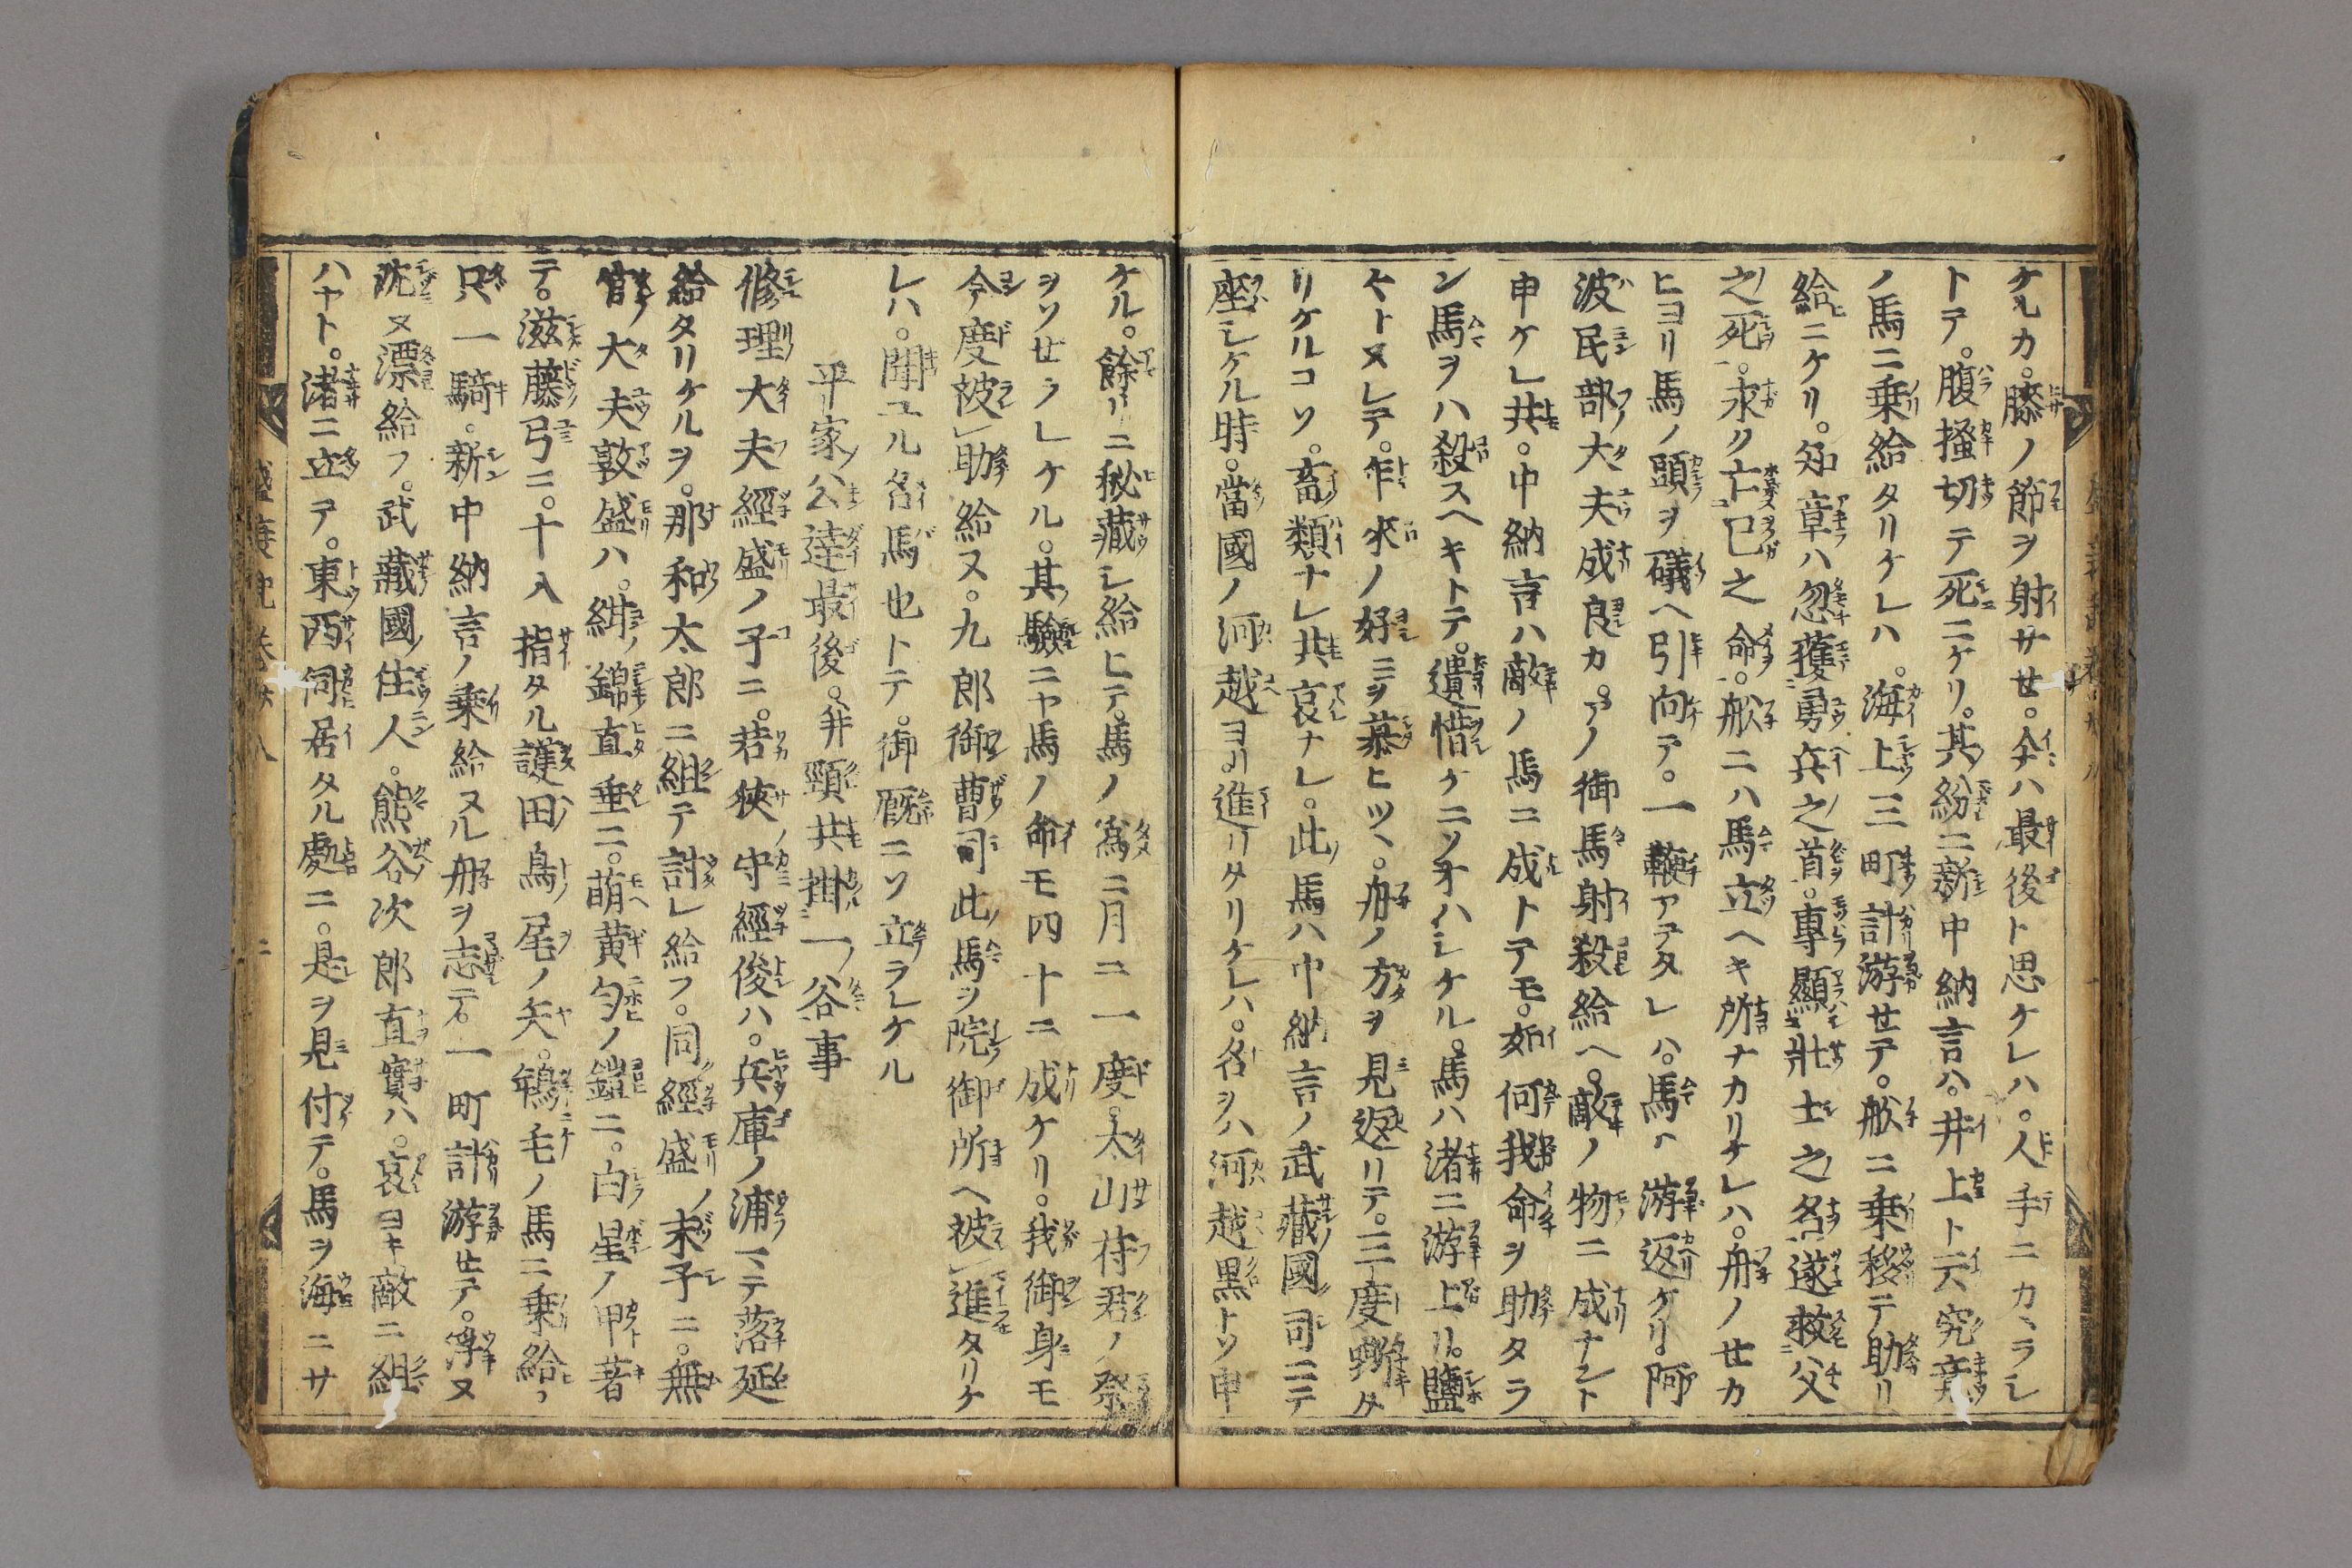 ケルカ。膝ノ節ヲ射サセ。今ハ最後ト思ケレハ。人手ニカヽラシ
トテ。腹搔切テ死ニケリ。其紛ニ新中納言ハ。井上ト云究竟
ノ馬ニ乗給タリケレハ。海上三町計游セテ。舩ニ乗移テ助リ
給ニケリ。知章ハ忽獲勇兵之首。專顯壯士之名。遂救父
之死。永ク亡己之命。舩ニハ馬立ヘキ所ナカリケレハ。舟ノセカ
ヒヨリ馬ノ頭ヲ礒ヘ引向テ。一鞭アテタレハ。馬ハ游返ケリ。阿
波民部大夫成良カ。アノ御馬射殺給ヘ。敵ノ物ニ成ナント
申ケレ共。中納言ハ敵ノ馬ニ成トテモ。如何我命ヲ助タラ
ン馬ヲハ殺スヘキトテ。遺惜ケニソオハシケル。馬ハ渚ニ游上リ。鹽
々トヌレテ。年來ノ好ミヲ慕ヒツヽ。舟ノ方ヲ見返リテ。三度嘶タ
リケルコソ。畜類ナレ共哀ナレ。此馬ハ中納言ノ武藏國司ニテ
座シケル時。當國ノ河越ヨリ進リタリケレハ。名ヲハ河越黒トソ申
ケル。餘リニ秘藏シ給ヒテ。馬ノ爲ニ月ニ一度。太山府君ノ祭
ヲソセラレケル。其驗ニヤ馬ノ命モ四十ニ成ケリ。我御身モ
今度被助給ヌ。九郎御曹司此馬ヲ院御所ヘ被進タリケ
レハ。聞ユル名馬也トテ。御厩ニソ立ラレケル
平家公達最後。并頸共掛一谷事
修理大夫經盛ノ子ニ。若狹ノ守經俊ハ。兵庫ノ浦マテ落延
給タリケルヲ。那和太郎ニ組テ討レ給フ。同經盛ノ末子ニ。無
官大夫敦盛ハ。紺ノ錦直垂ニ。萌黄匂ノ鎧ニ。白星ノ甲著
テ。滋藤弓ニ。十八指タル護田鳥尾ノ矢。鴾毛ノ馬ニ乗給ヒ
只一騎。新中納言ノ乗給ヌル舟ヲ志テ。一町計游セテ。浮ヌ
沈ヌ漂給フ。武藏國住人。熊谷次郎直實ハ。哀ヨキ敵ニ組
ハヤト。渚ニ立テ。東西伺居タル處ニ。是ヲ見付テ。馬ヲ海ニサ